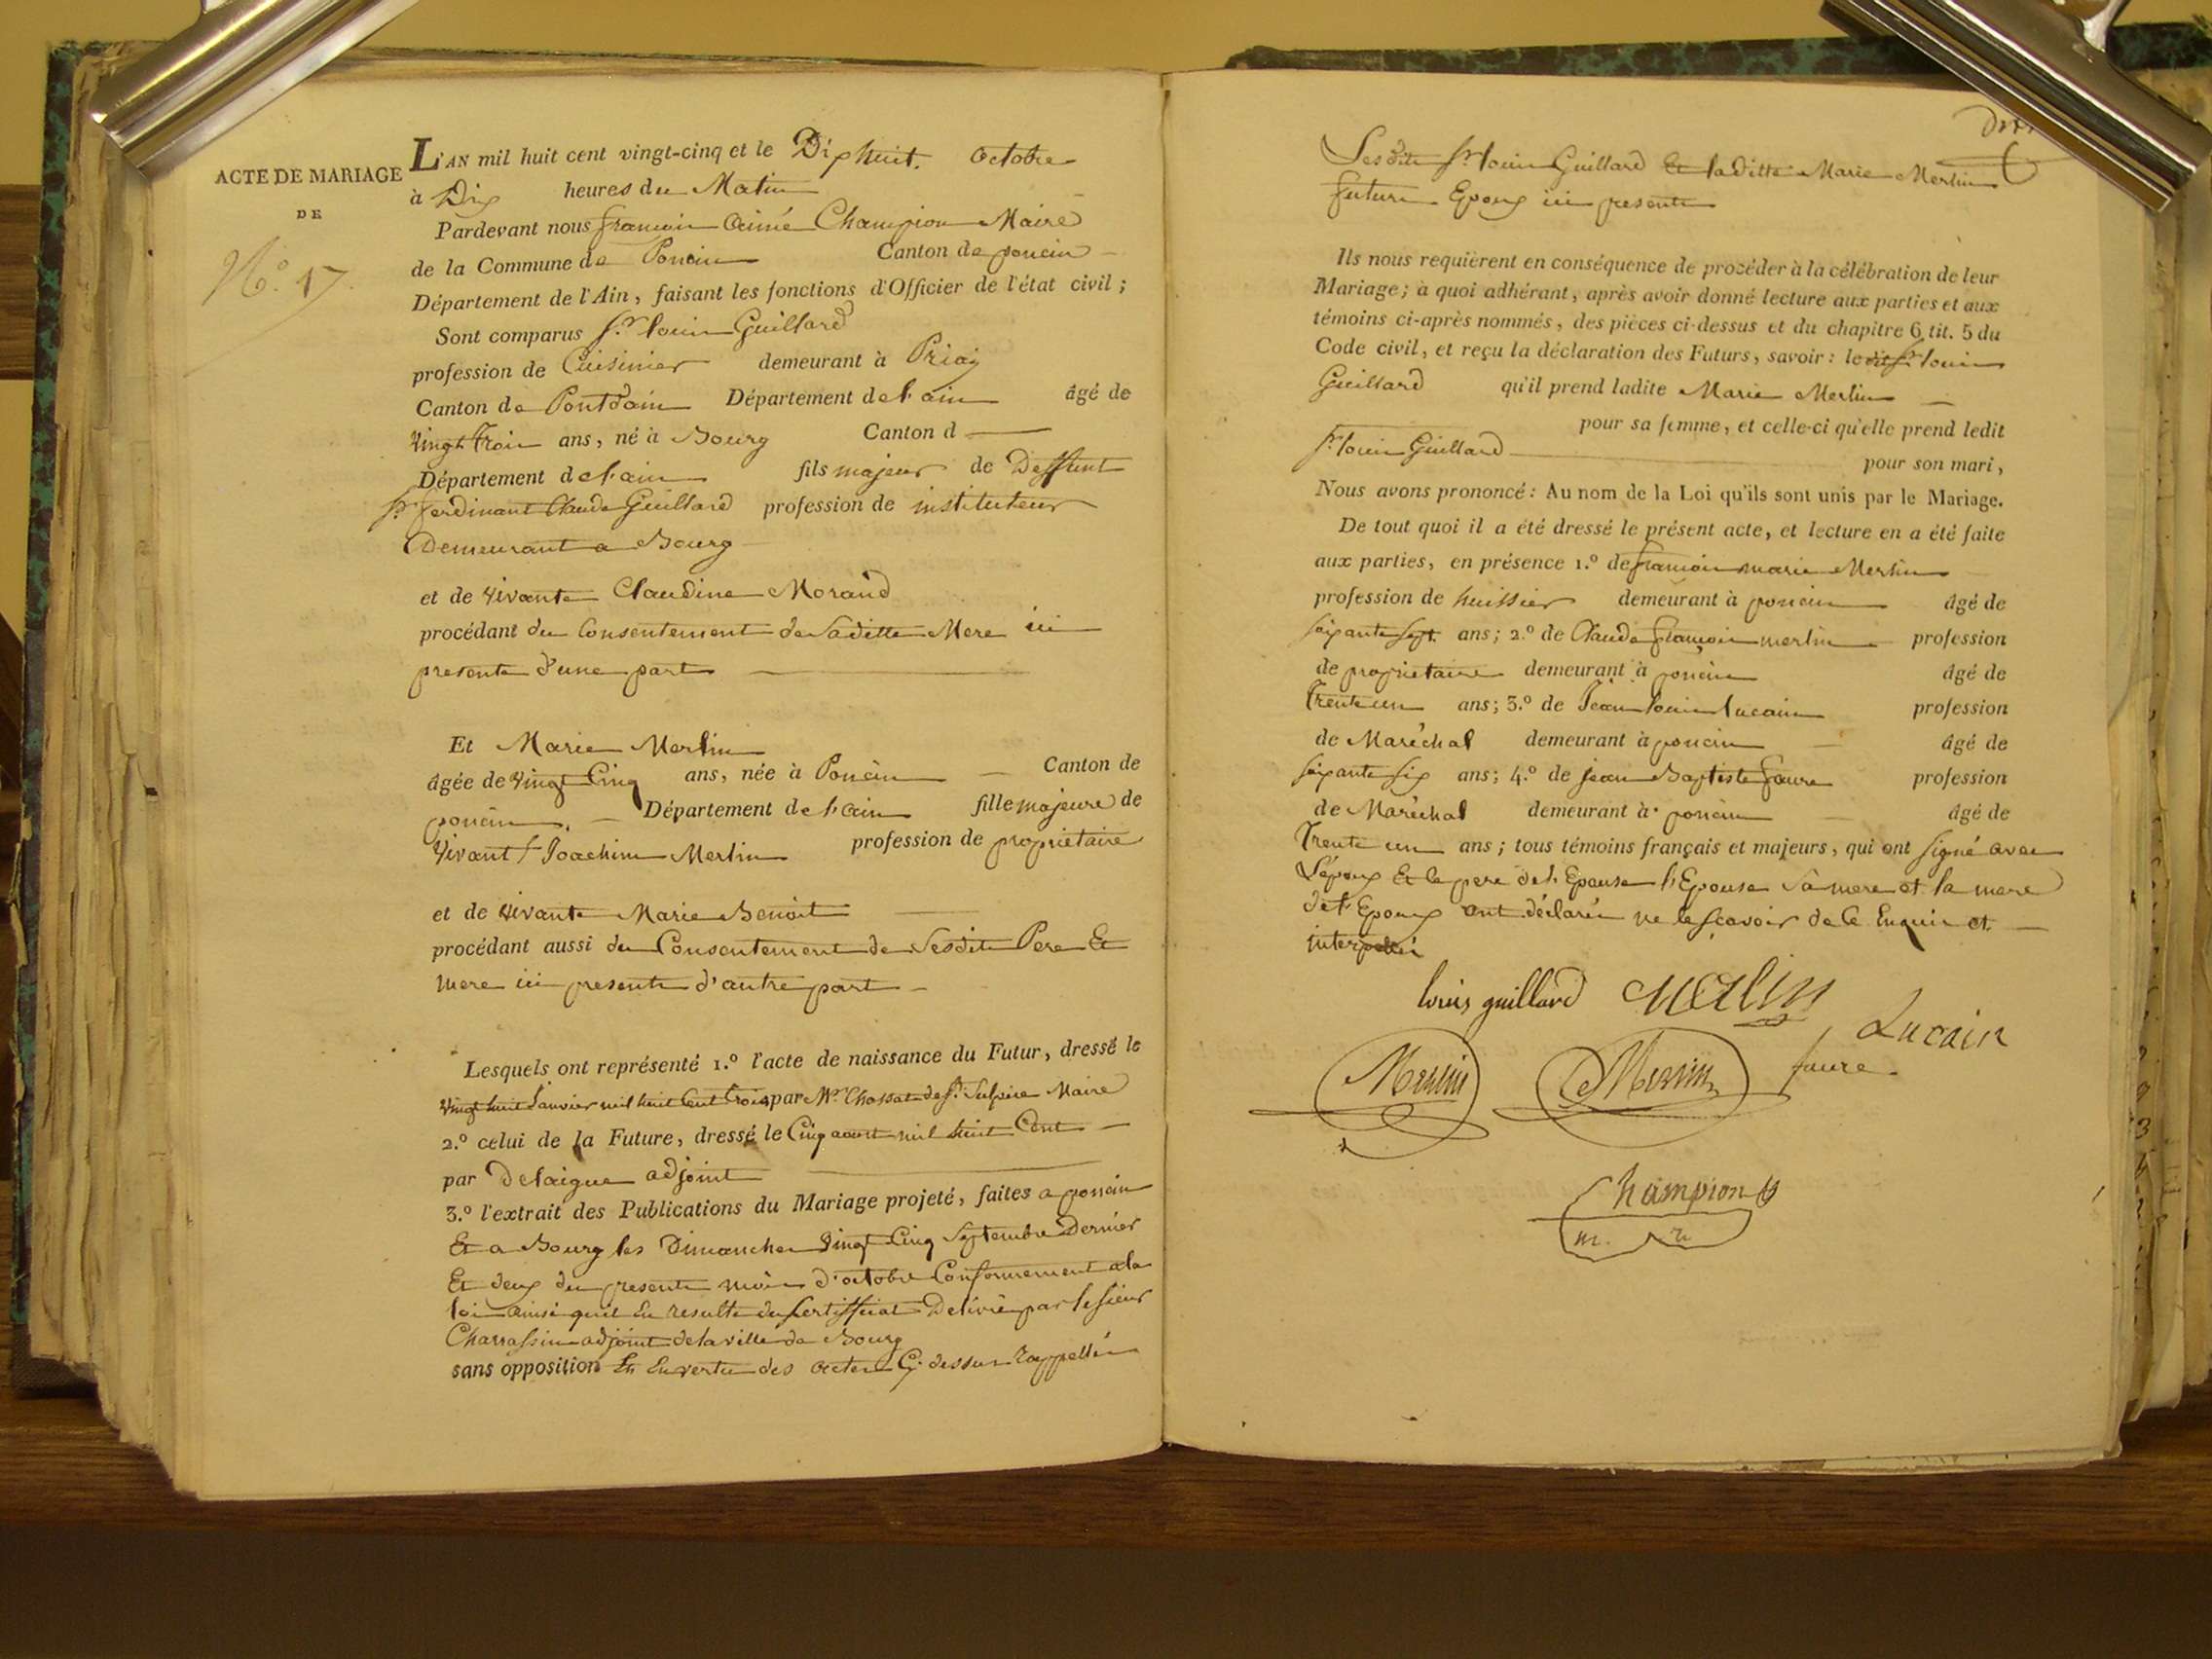 ACTE DE MARIAGE
DE
N.º 17.
L'AN mil huit cent vingt-cinq et le Dix huit. octobre
à Dix heures du Matin
Pardevant nous françois Aimé Champion Maire
de la Commune de Poncin Canton de poncin
Département de l'Ain, faisant les fonctions d'Officier de l'état civil ;
Sont comparus S.r louis Guillard
profession de Cuisinier demeurant à Priay
Canton de Pontdain Département de l'ain âgé de
vingt trois ans, né à Bourg Canton d
Département de l'ain fils majeur de Deffunt
S.r ferdinant Claude Guillard profession de instituteur
Demeurant a Bourg
et de vivante Claudine Morand
procédant du Consentement de Saditte Mere ici
presente d'une part
Et Marie Merlin
âgée de vingt Cinq ans, née à Poncin Canton de
poncin Département de l'ain fille majeure de
vivant S.r Joachim Merlin profession de propriétaire
et de vivante Marie Benoit
procédant aussi du Consentement de Sesdits Pere Et
mere ici presents d'autre part
Lesquels ont représenté 1.º l'acte de naissance du Futur, dressé le
vingt huit Janvier mil huit Cent trois par M.r Chossat de S.t Sulpice Maire
2.º celui de la Future, dressé le Cinq aoust mil huit Cent
par Delaigue adjoint
3.º l'extrait des Publications du Mariage projeté, faites a poncin
Et a Bourg les Dimanches vingt Cinq Septembre Dernier
Et deux du present mois d'octobre Conformement a la
loi ainsi quil En resulte du Certifficat Delivré par le sieur
Charassin adjoint de la ville de Bourg
sans opposition Et En vertu des actes Cy dessus rappellés
Lesdits S.r louis Guillard Et laditte Marie Merlin
futurs Epoux ici presents
Ils nous requièrent en conséquence de procéder à la célébration de leur
Mariage ; à quoi adhérant, après avoir donné lecture aux parties et aux
témoins ci-après nommés, des pièces ci-dessus et du chapitre 6 tit. 5 du
Code civil, et reçu la déclaration des Futurs, savoir : ledit S.r louis
Guillard qu'il prend ladite Marie Merlin
pour sa femme, et celle-ci qu'elle prend ledit
S.r louis Guillard pour son mari,
Nous avons prononcé : Au nom de la Loi qu'ils sont unis par le Mariage.
De tout quoi il a été dressé le présent acte, et lecture en a été faite
aux parties, en présence 1.º de françois marie Merlin
profession de huissier demeurant à poncin âgé de
soixante sept ans ; 2.º de Claude françois merlin profession
de propriétaire demeurant à poncin âgé de
Trente un ans ; 3.º de Jean louis lucain profession
de Maréchal demeurant à poncin âgé de
soixante six ans ; 4.º de jean Baptiste faure profession
de Maréchal demeurant à poncin âgé de
Trente un ans ; tous témoins français et majeurs, qui ont signé avec
L'époux Et le pere de l'Epouse l'Epouse Sa mere et la mere
de l'Epoux ont déclarés ne le scavoir de ce Enquis et
interpellés
louis guillard Merlin
Lucain
Merlin Merlin faure
Champion
m. re